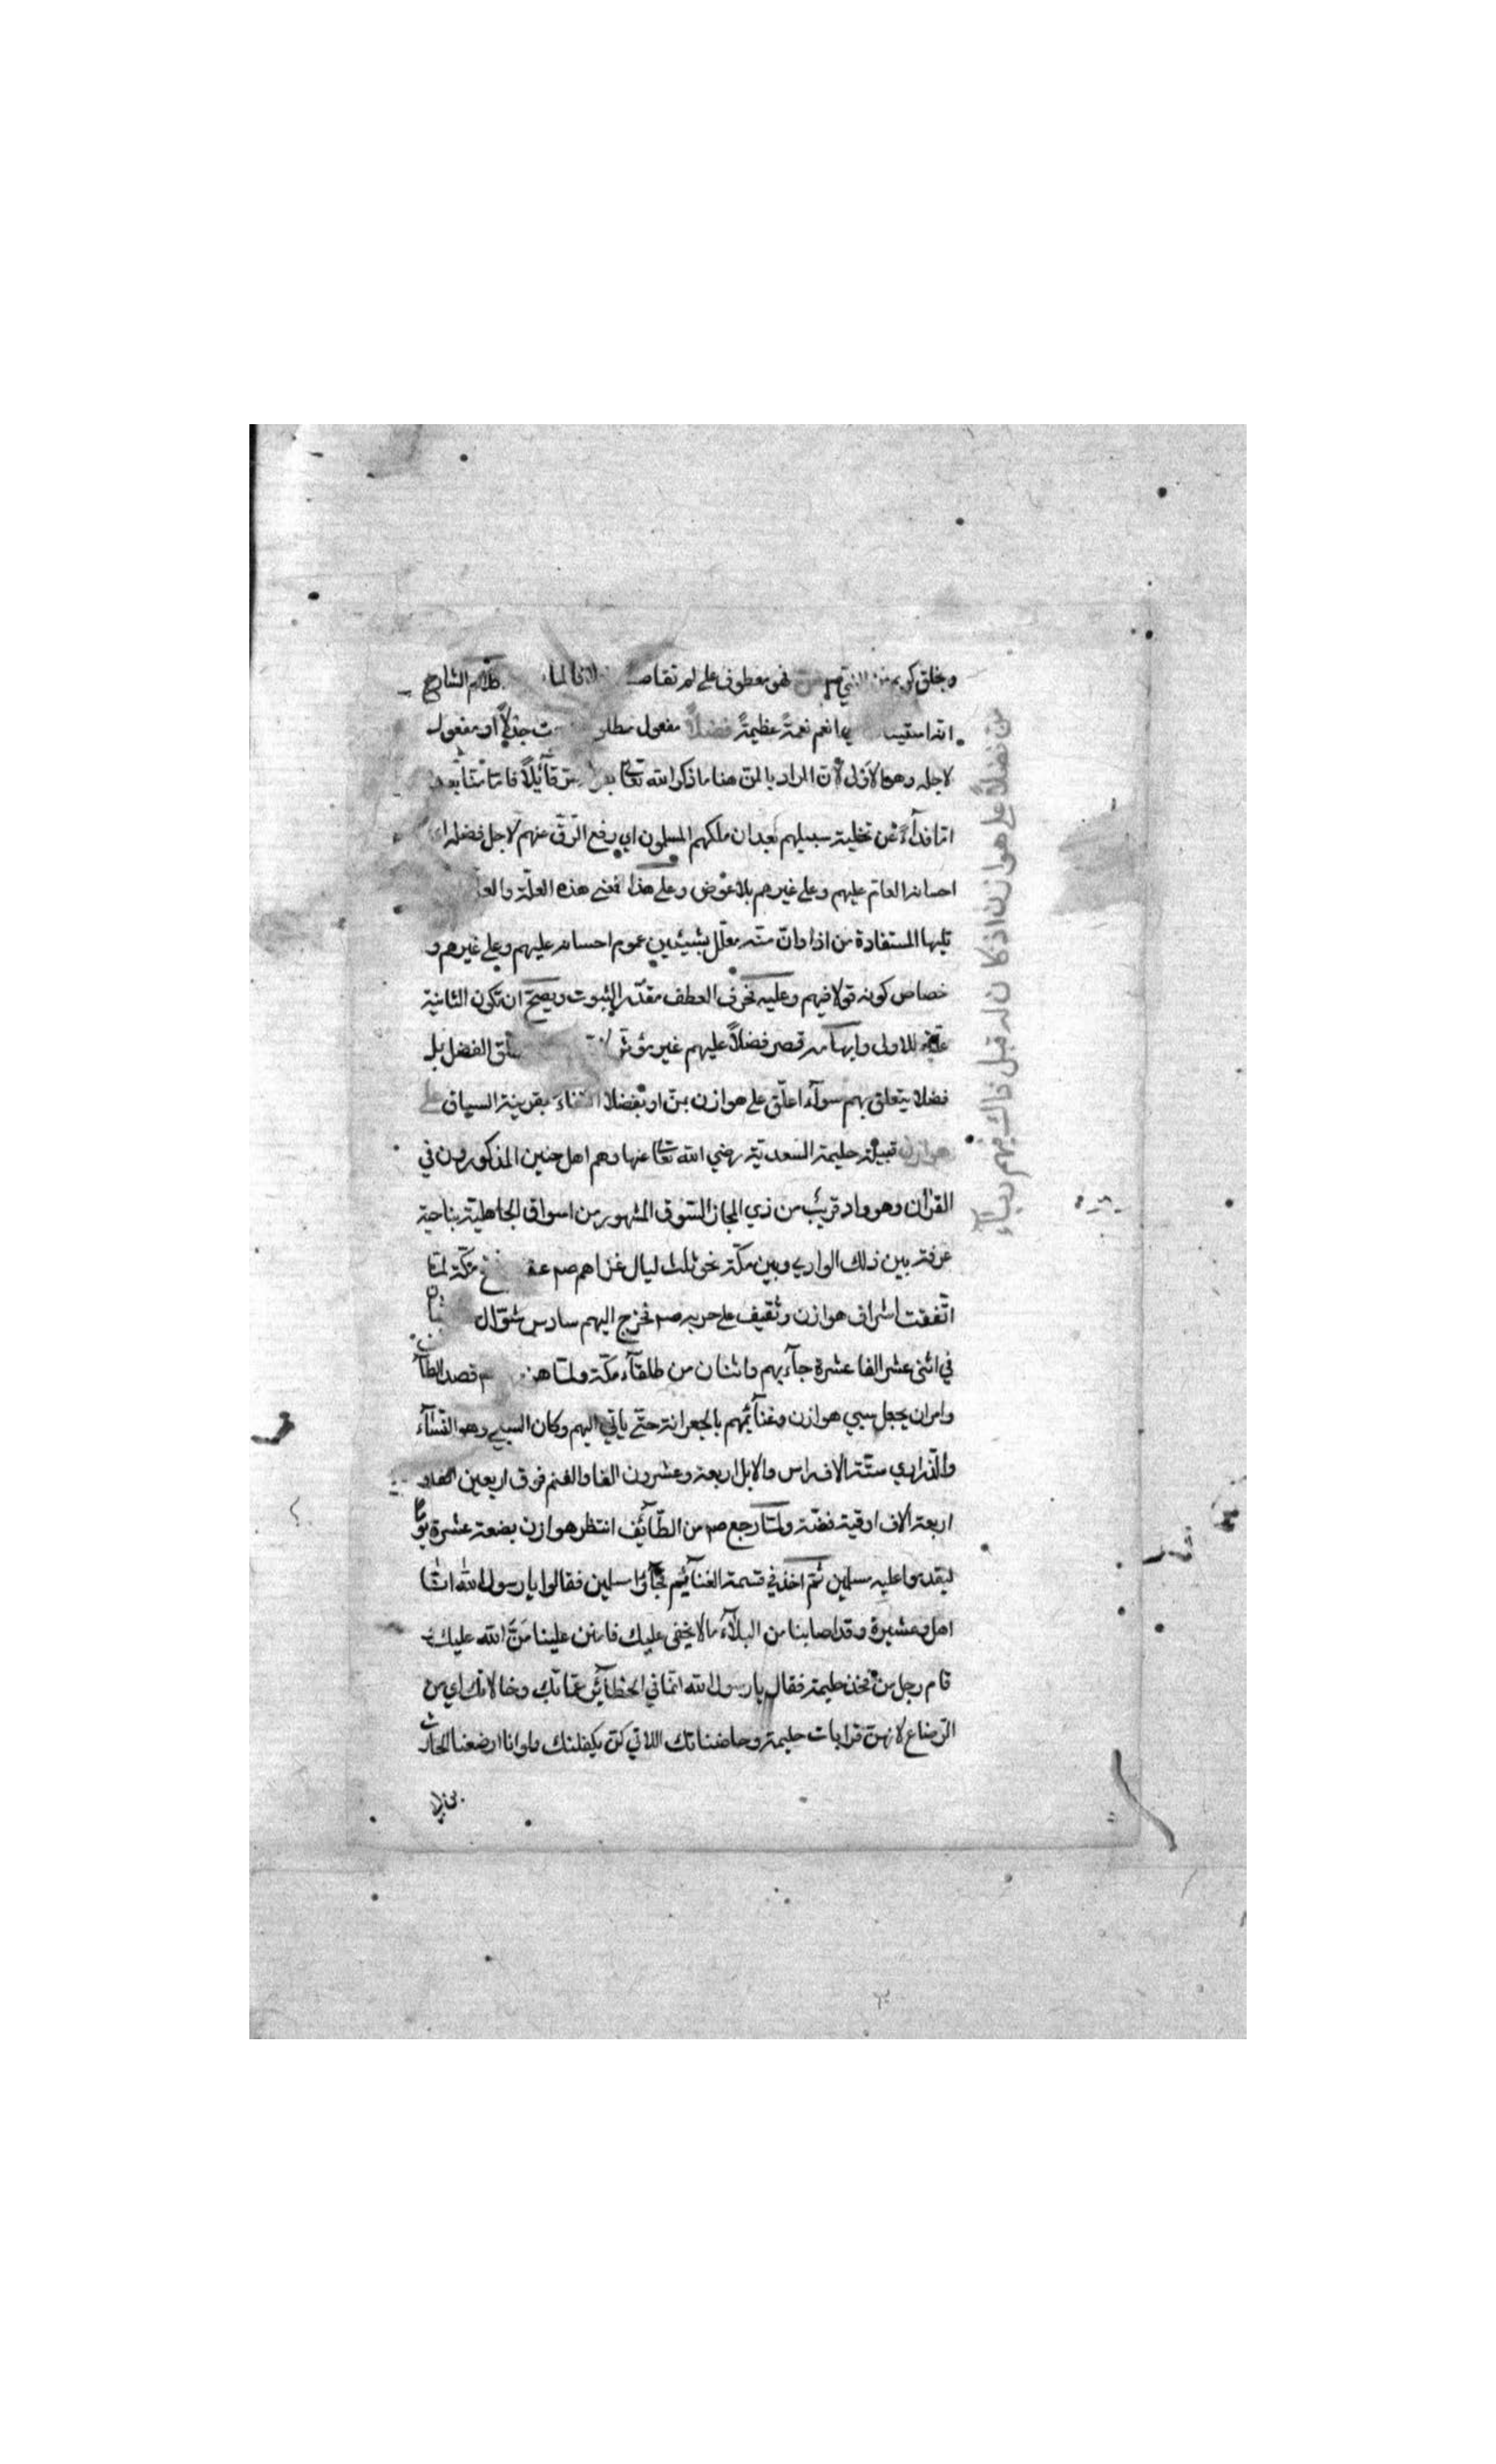 وبخلق كريم من النبي صم فهو معطوف على لم تقاص خلافا لما كلام الشارح
انه استيناف اي انعم نعمة عظيمة فضلاً مفعول مطلق جذلاً او مفعول
لاجله وهو الاولى لان المراد بالمن هنا ما ذكر الله تعا من قائلاً فاما منّا بعد
اما فداء عن تخلية سبيلهم بعد ان ملكهم المسلمون اي رفع الرق عنهم لاجل فضله اي
احسانه العام عليهم وعلى غيرهم بلا عوض وعلى هذا فمعنى هذه العلة والعلة
تليها المستفادة من اذا وان منه معلل بشيئين عموم احسانه عليهم وعلى غيرهم و
خصاص كونه قولا فيهم وعليه فحرف العطف مقدر الثبوت ويصح ان تكون الثانية
علة للاولى وايهامه قصر فضلاً عليهم غير مؤثر الفضل بل
فضلا يتعلق بهم سواء اعلق على هوازن بمن او بفضلا اكتفاء بقرينة السياق على
هوازن قبيلة حليمة السعدية رضي الله تعا عنها وهم اهل حنين المذكورون في
القرآن وهو واد قريب من ذي المجاز السوق المشهور من اسواق الجاهلية بناحية
عرفة بين ذلك الوادي وبين مكة نحو ثلث ليال غزاهم صم عقب فتح مكة لما
اتفقت اشراف هوازن وثقيف على حربه صم فخرج اليهم سادس شوال
في اثنى عشر الفا عشرة جاء بهم واثنان من طلقاء مكة ولما هزمهم قصد الطا
وامر ان يجعل سبي هوازن وغنائمهم بالجعرانة حتى ياتي اليهم وكان السبي وهو النساء
والذراري ستة الاف راس والابل اربعة وعشرون الفا والغنم فوق اربعين الفا و
اربعة الاف اوقية فضة ولما رجع صم من الطائف انتظر هوازن بضعة عشرة يوما
ليقدموا عليه مسلمين ثم اخذ في قسمة الغنائم فجاؤا مسلمين فقالوا يا رسول الله انا
اهل وعشيرة وقد اصابنا من البلاء ما لا يخفى عليك فامنن علينا منّ الله عليك
قام رجل من فخذ حليمة فقال يا رسول الله انما في الحظائر عماتك وخالاتك اي من
الرضاع لانهن قرابات حليمة وحاضناتك اللاتي كن يكفلنك ولو انا ارضعنا الحارث
من فضلاً على هوازن اذ كان له قبل ذاك فيهم رباء